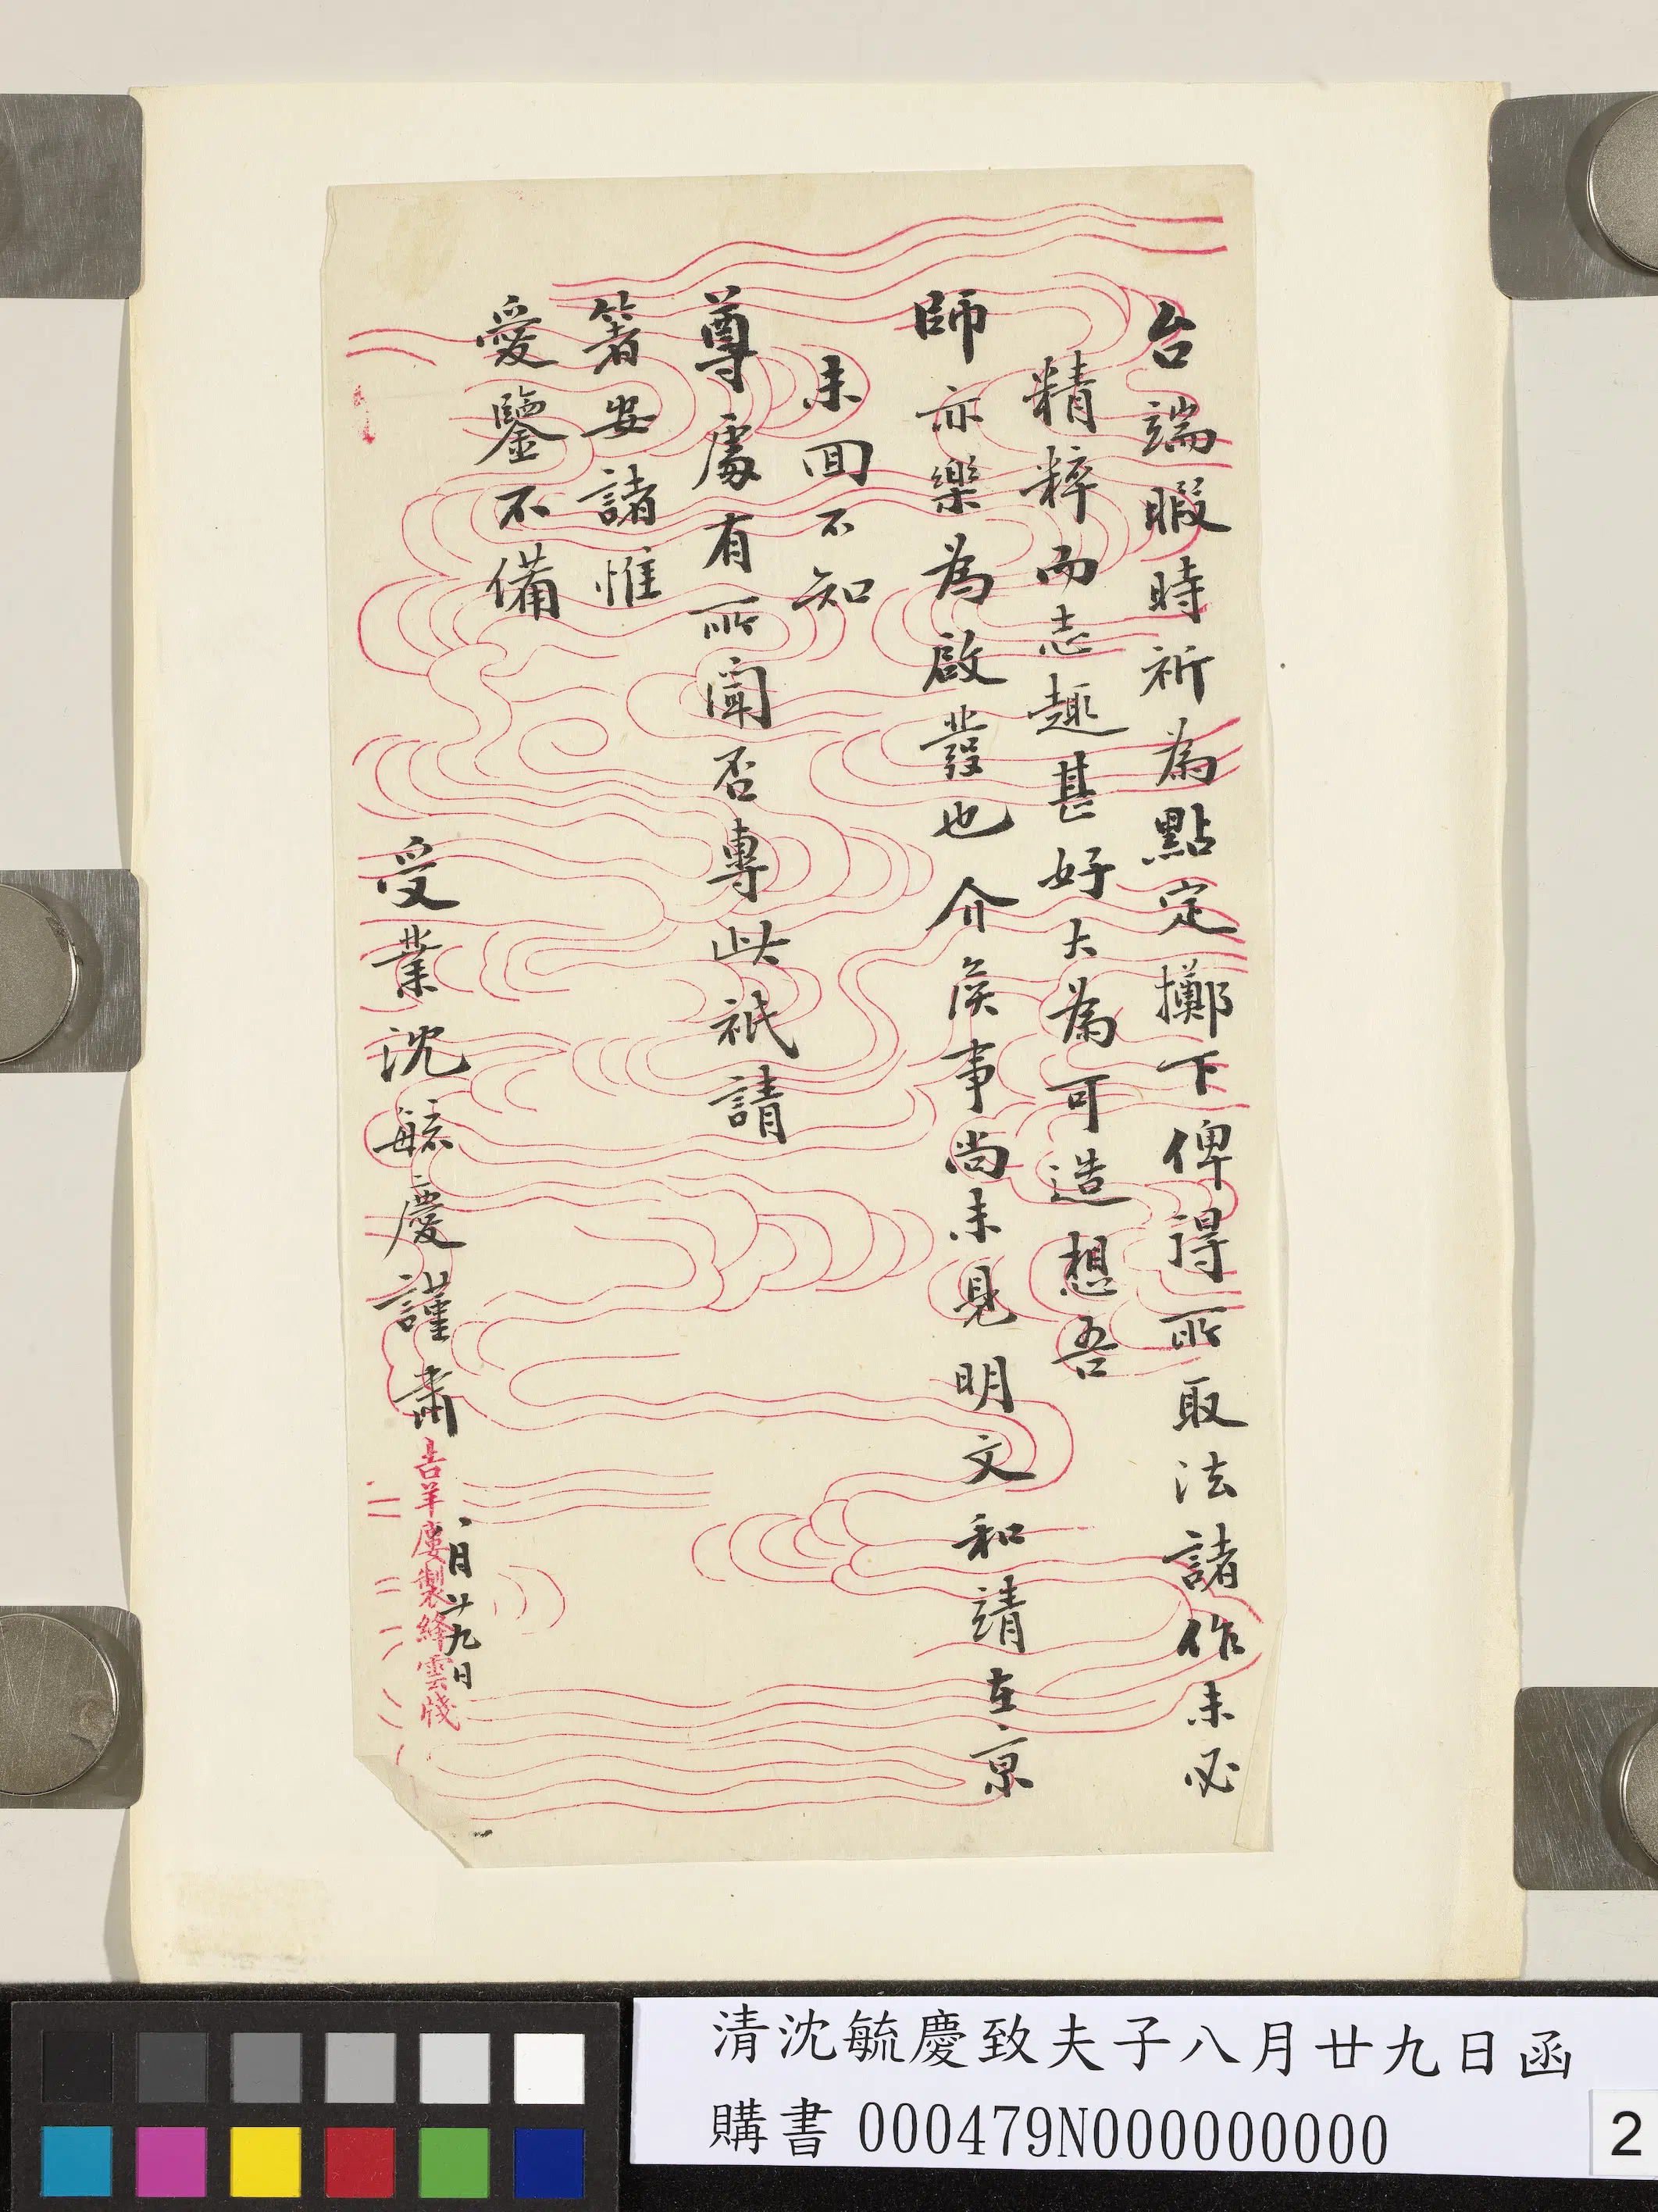 台端暇時祈為點定擲下俾得所取法諸作未必
精粹而志趣甚好大為可造想吾
師亦樂為啟發也介侯事尚未見明文和靖在京
未回不知
尊處有所聞否專此祇請
箸安諸惟
愛鑒不備
受業沈毓慶謹肅
八月廿九日
吉羊廔製絳雲牋
清沈毓慶致夫子八月廿九日函
購書 000479N000000000
2